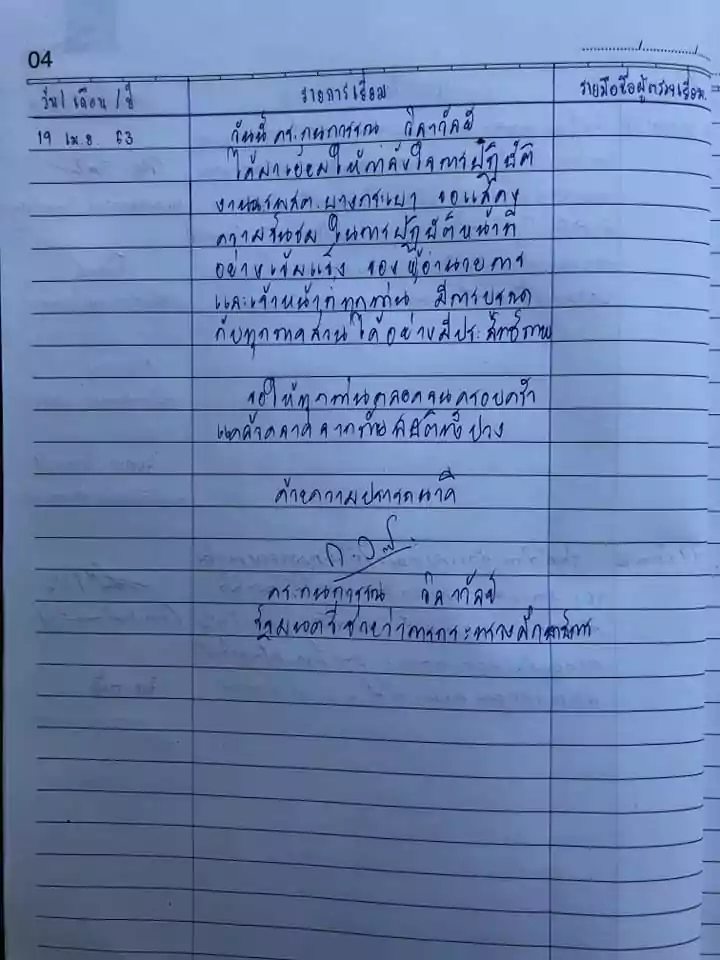 04
วัน / เดือน / ปี
รายการเยี่ยม
รายมือชื่อผู้ตรวจเยี่ยม.
19 เม.ย. 63
วันนี้ ดร.กนกวรรณ วิลาวัลย์
ได้มาเยี่ยมให้กำลังใจการปฏิบัติ
งานรพสต.บางกระเบา ขอแสดง
ความชื่นชม ในการปฏิบัติหน้าที่
อย่างเข้มแข็ง ของผู้อำนวยการ
และเจ้าหน้าที่ทุกท่าน มีการ
กับทุกภาคส่วนได้อย่างมีประสิทธิภาพ
ขอให้ทุกท่านตลอดจนครอบครัว
แคล้วคลาดจากภัยพิบัติทั้งปวง
ด้วยความปรารถนาดี
ดร.กนกวรรณ วิลาวัลย์
รัฐมนตรีช่วยว่าการกระทรวงศึกษาธิการ